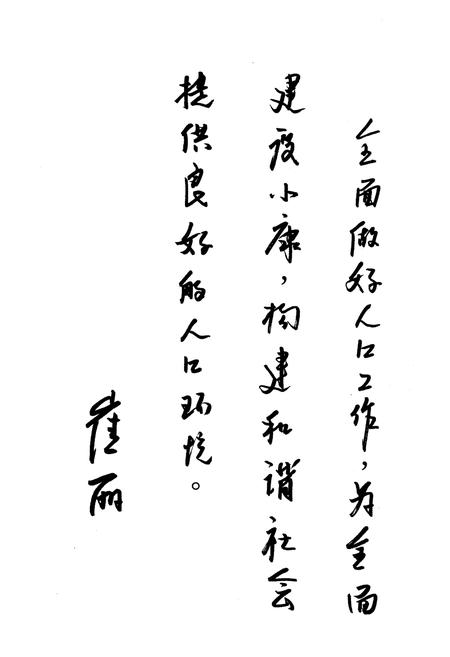 全面做好人口工作，为全面
建设小康，构建和谐社会
提供良好的人口环境。
崔丽